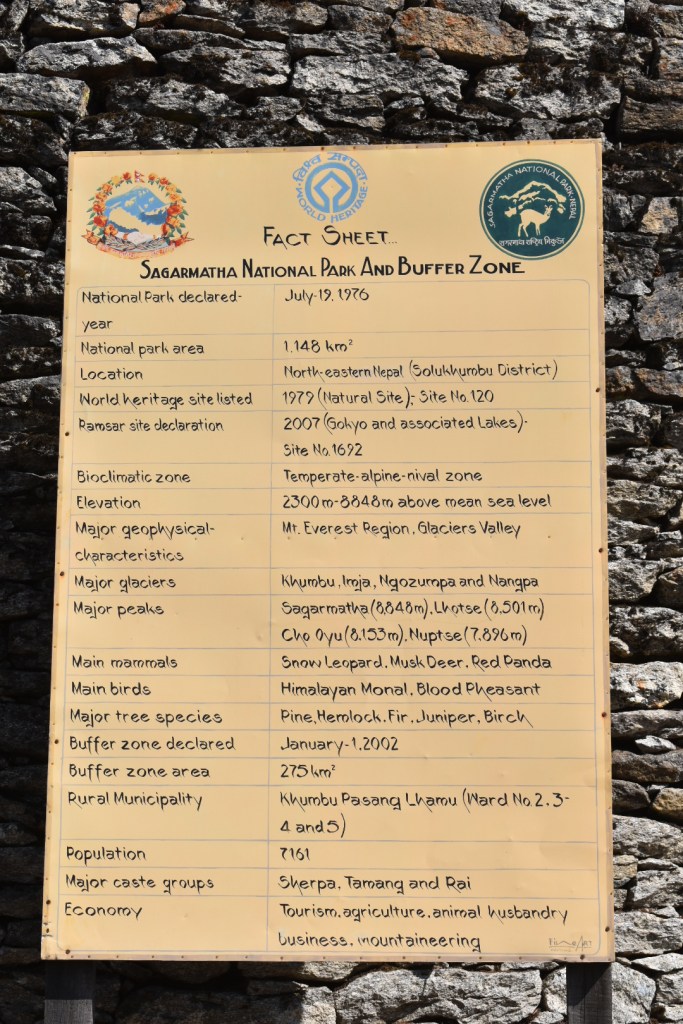 विश्व सम्पदा
WORLD HERITAGE
SAGARMATHA NATIONAL PARK-NEPAL
सगरमाथा राष्ट्रिय निकुञ्ज
FACT SHEET...
SAGARMATHA NATIONAL PARK AND BUFFER ZONE
National Park declared- July-19, 1976
year
National park area 1,148 km²
Location North-eastern Nepal (Solukhumbu District)
World heritage site listed 1979 (Natural Site)- Site No.120
Ramsar site declaration 2007 (Gokyo and associated Lakes)-
Site No.1692
Bioclimatic zone Temperate-alpine-nival zone
Elevation 2300m-8848m above mean sea level
Major geophysical- Mt. Everest Region, Glaciers Valley
characteristics
Major glaciers Khumbu, Imja, Ngozumpa and Nangpa
Major peaks Sagarmatha (8,848m), Lhotse (8,501m)
Cho Oyu (8,153m), Nuptse (7,896m)
Main mammals Snow Leopard, Musk Deer, Red Panda
Main birds Himalayan Monal, Blood Pheasant
Major tree species Pine, Hemlock, Fir, Juniper, Birch
Buffer zone declared January-1, 2002
Buffer zone area 275 km²
Rural Municipality Khumbu Pasang Lhamu (Ward No. 2, 3-
4 and 5)
Population 7161
Major caste groups Sherpa, Tamang and Rai
Economy Tourism, agriculture, animal husbandry
business, mountaineering